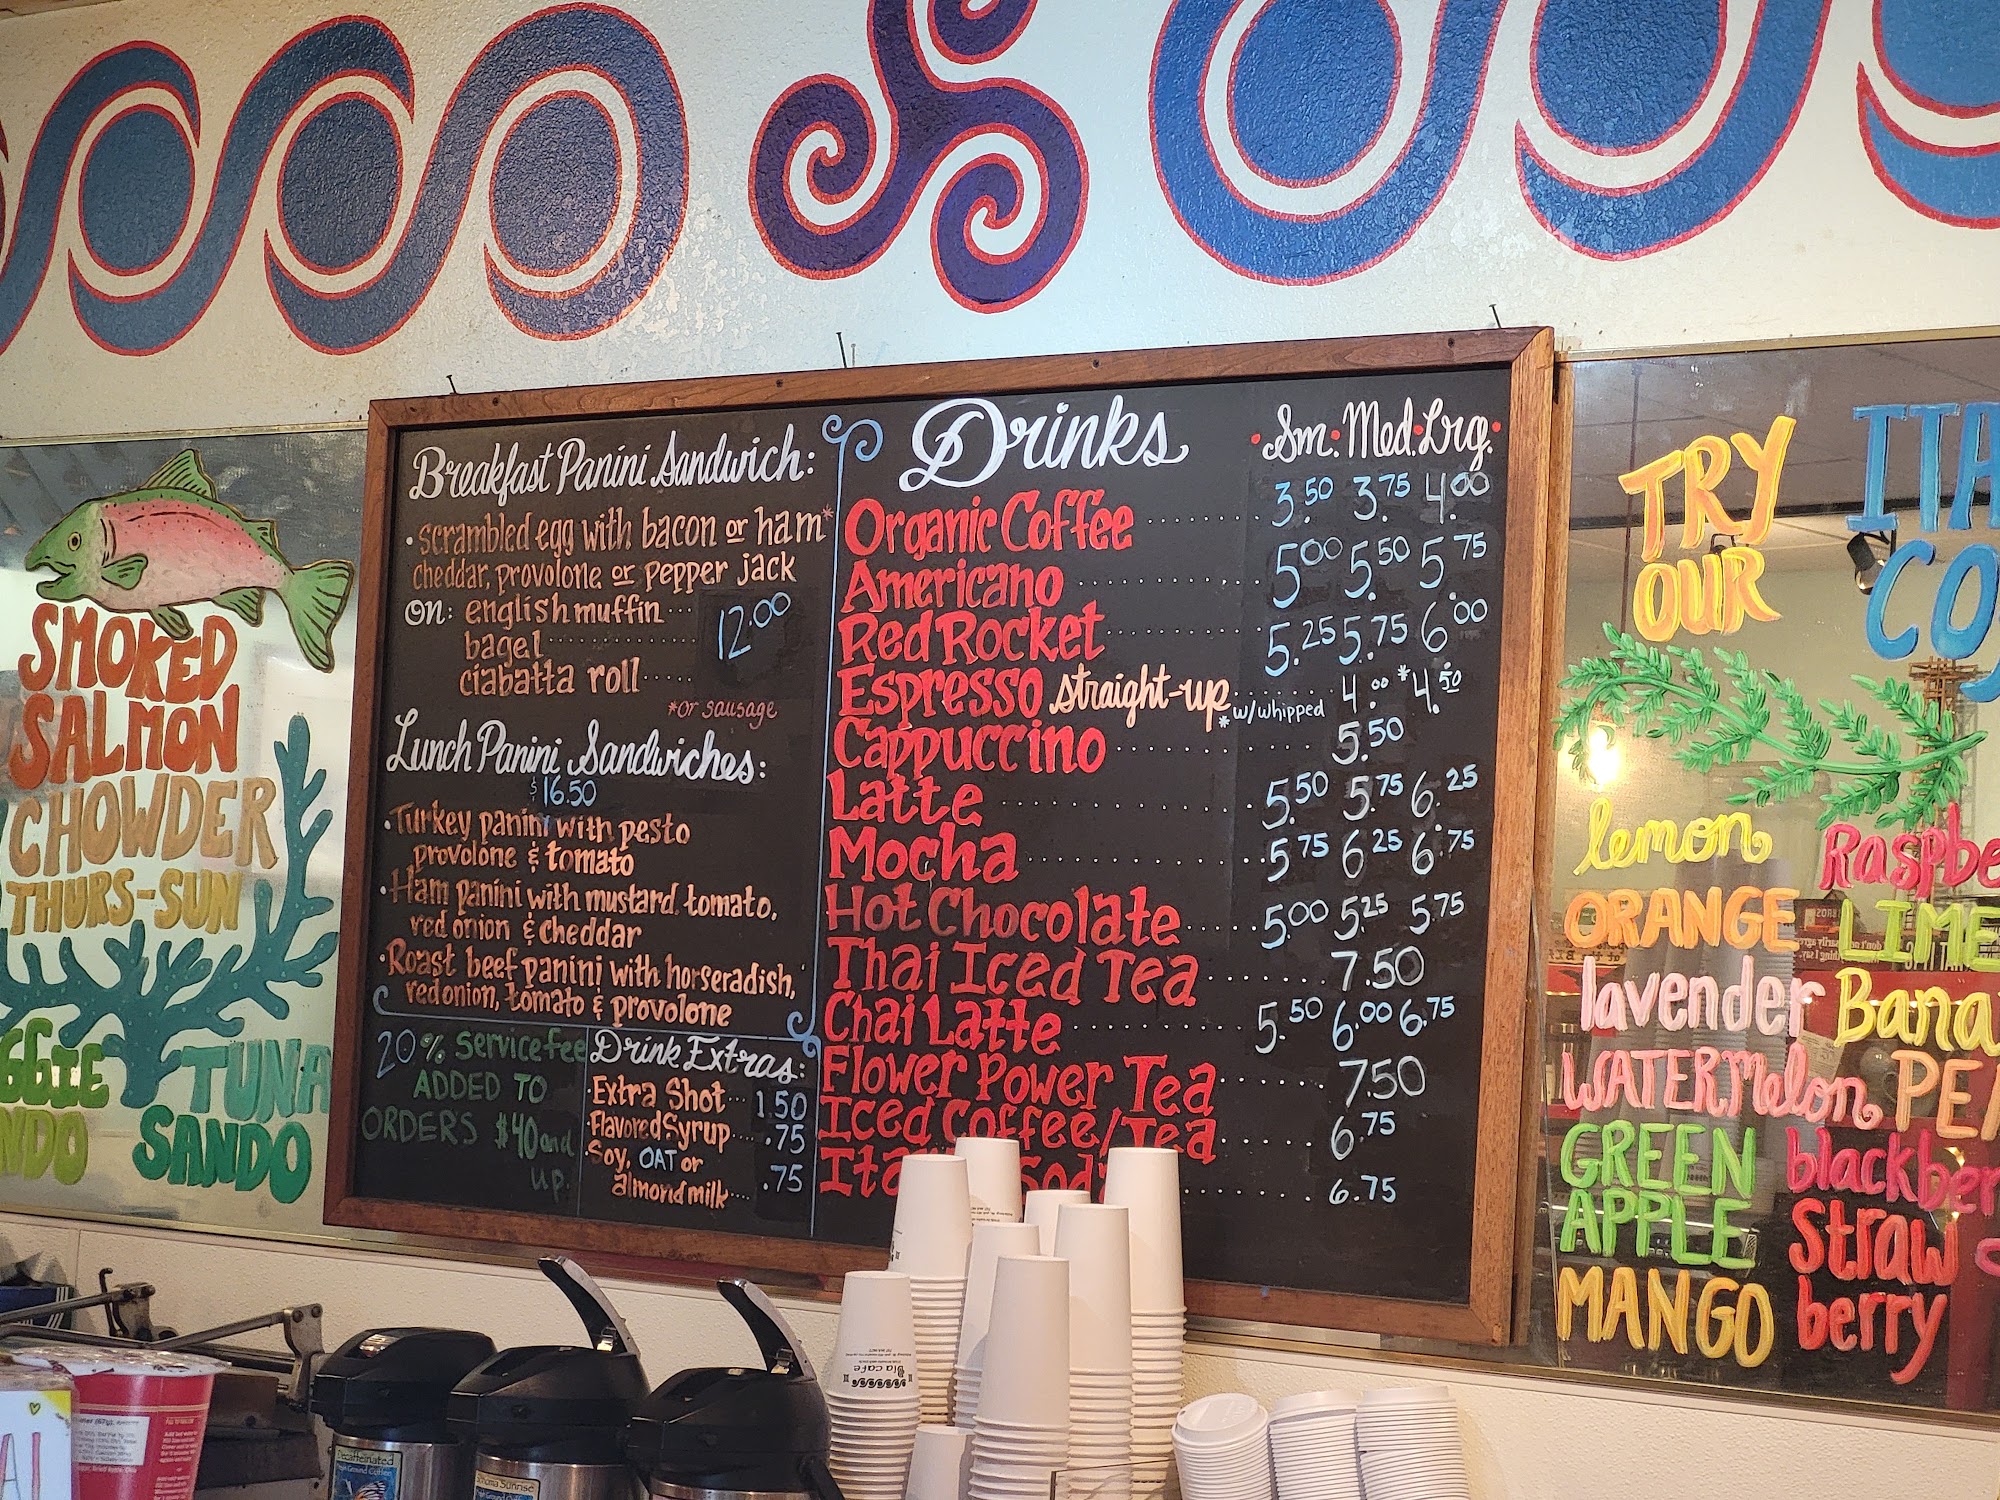 SMOKED
SALMON
CHOWDER
THURS-SUN
TUNA
SANDO
Breakfast Panini Sandwich:
• scrambled egg with bacon or ham*
cheddar, provolone or pepper jack
on: english muffin ...
bagel ........ 12.00
ciabatta roll .....
*or sausage
Lunch Panini Sandwiches:
$16.50
• Turkey panini with pesto
provolone & tomato
• Ham panini with mustard, tomato,
red onion & cheddar
• Roast beef panini with horseradish,
red onion, tomato & provolone
20% Service fee
ADDED TO
ORDERS $40 and
up.
Drink Extras:
• Extra Shot ... 1.50
• Flavored Syrup .... .75
• Soy, OAT or
almond milk .... .75
Drinks • Sm. • Med. • Lrg. •
Organic Coffee ........ 3.50 3.75 4.00
Americano ........ 5.00 5.50 5.75
Red Rocket ........ 5.25 5.75 6.00
Espresso straight-up ........ 4.00 *4.50
*w/whipped
Cappuccino ........ 5.50
Latte ........ 5.50 5.75 6.25
Mocha ........ 5.75 6.25 6.75
Hot Chocolate ..... 5.00 5.25 5.75
Thai Iced Tea ...... 7.50
Chai Latte ........ 5.50 6.00 6.75
Flower Power Tea ...... 7.50
Iced Coffee/Tea ...... 6.75
...... 6.75
TRY
OUR
lemon
ORANGE LIME
lavender
WATERmelon
GREEN
APPLE
MANGO
straw
berry
Decaffeinated
Bla cafe